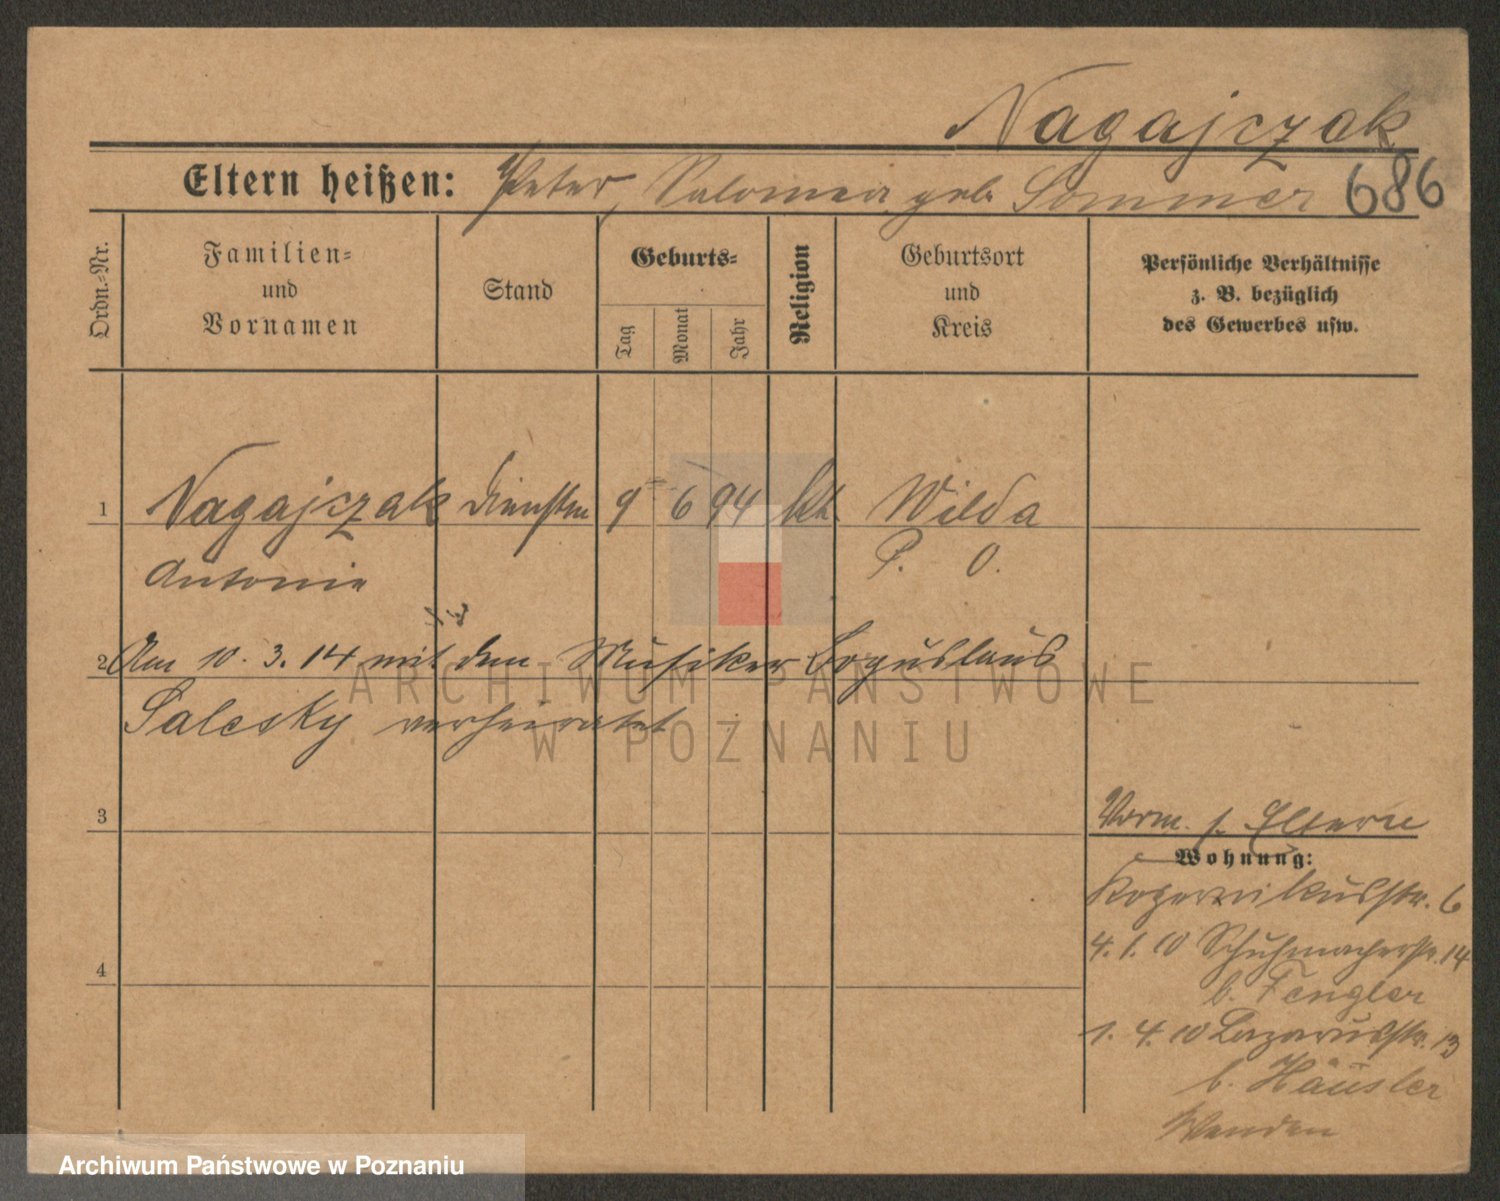 Nagajczak
Eltern heißen: Peter, Salomea geb. Sommer 686
Ordn.-Nr.
Familien-
und
Vornamen
Stand
Geburts-
Tag
Monat
Jahr
Religion
Geburtsort
und
Kreis
Persönliche Verhältnisse
z. B. bezüglich
des Gewerbes usw.
1 Nagajczak Dienstm 9 6 94 kth. Wilda
Antonie P. O.
2 Am 10. 3. 14 mit dem Musiker Boguslaus
Salesky verheiratet
3
4
Vorm. s. Eltern
Wohnung:
Kopernikusstr. 6
4. 1. 10 Schuhmacherstr. 14
b. Fengler
1. 4. 10 Lazarusstr. 13
b. Häusler
ARCHIWUM PAŃSTWOWE
W POZNANIU
Archiwum Państwowe w Poznaniu